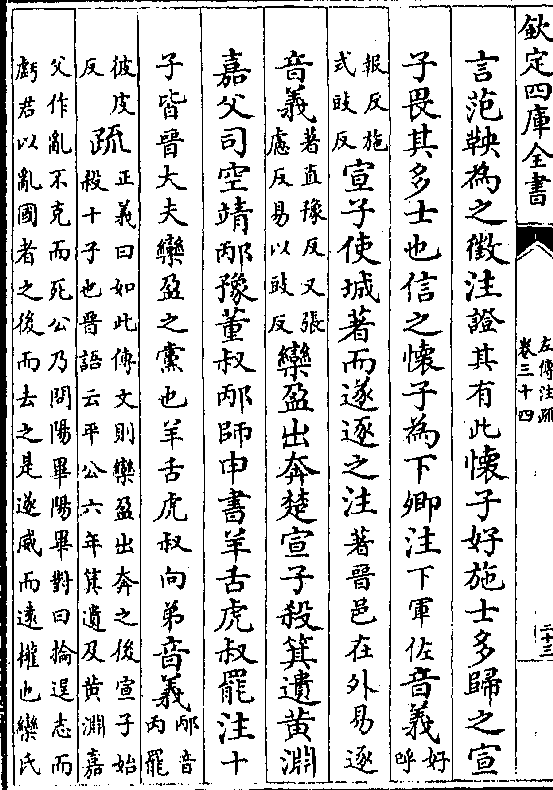 欽定四庫全書
左傳注疏
卷三十四
二十三
言范鞅為之徵注證其有此懷子好施士多歸之宣
子畏其多士也信之懷子為下卿注下軍佐音義好呼
報反施式豉反宣子使城著而遂逐之注著晉邑在外易逐
音義著直豫反又張慮反易以豉反欒盈出奔楚宣子殺箕遺黃淵
嘉父司空靖邴豫董叔邴師申書羊舌虎叔羆注十
子皆晉大夫欒盈之黨也羊舌虎叔向弟音義邴音丙羆
彼皮反疏正義曰如此傳文則欒盈出奔之後宣子始殺十子也晉語云平公六年箕遺及黃淵嘉
父作亂不克而死公乃問陽畢陽畢對曰掄逞志而虧君以亂國者之後而去之是遂威而遠權也欒氏